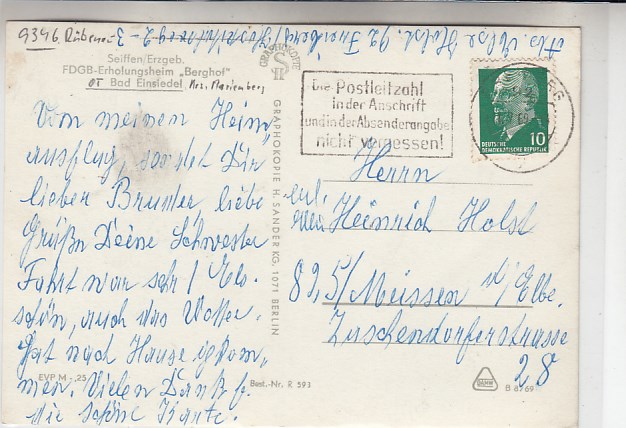 9346 Rübenau
Abs. Else Holst. 92 Freiberg/
Seiffen/Erzgeb.
FDGB-Erholungsheim „Berghof"
OT Bad Einsiedel Krs. Marienberg
GRAPHOKOPIE
GRAPHOKOPIE H. SANDER KG, 1071 BERLIN
Die Postleitzahl
in der Anschrift
und in der Absenderangabe
nicht vergessen!
10
DEUTSCHE
DEMOKRATISCHE REPUBLIK
Vom meinen Heim„
ausflug, sendet Dir
lieber Bruder liebe
Grüße Deine Schwester
Fahrt war sehr / Else.
schön, auch das Wetter.
Gut nach Hause igkom„
men. Vielen Dank f.
die schöne Karte.
Herrn
Heinrich Holst
825/Meissen d/Elbe.
Zaschendorferstrasse
28
EVP M -,25
Best.-Nr. R 593
B 8/69